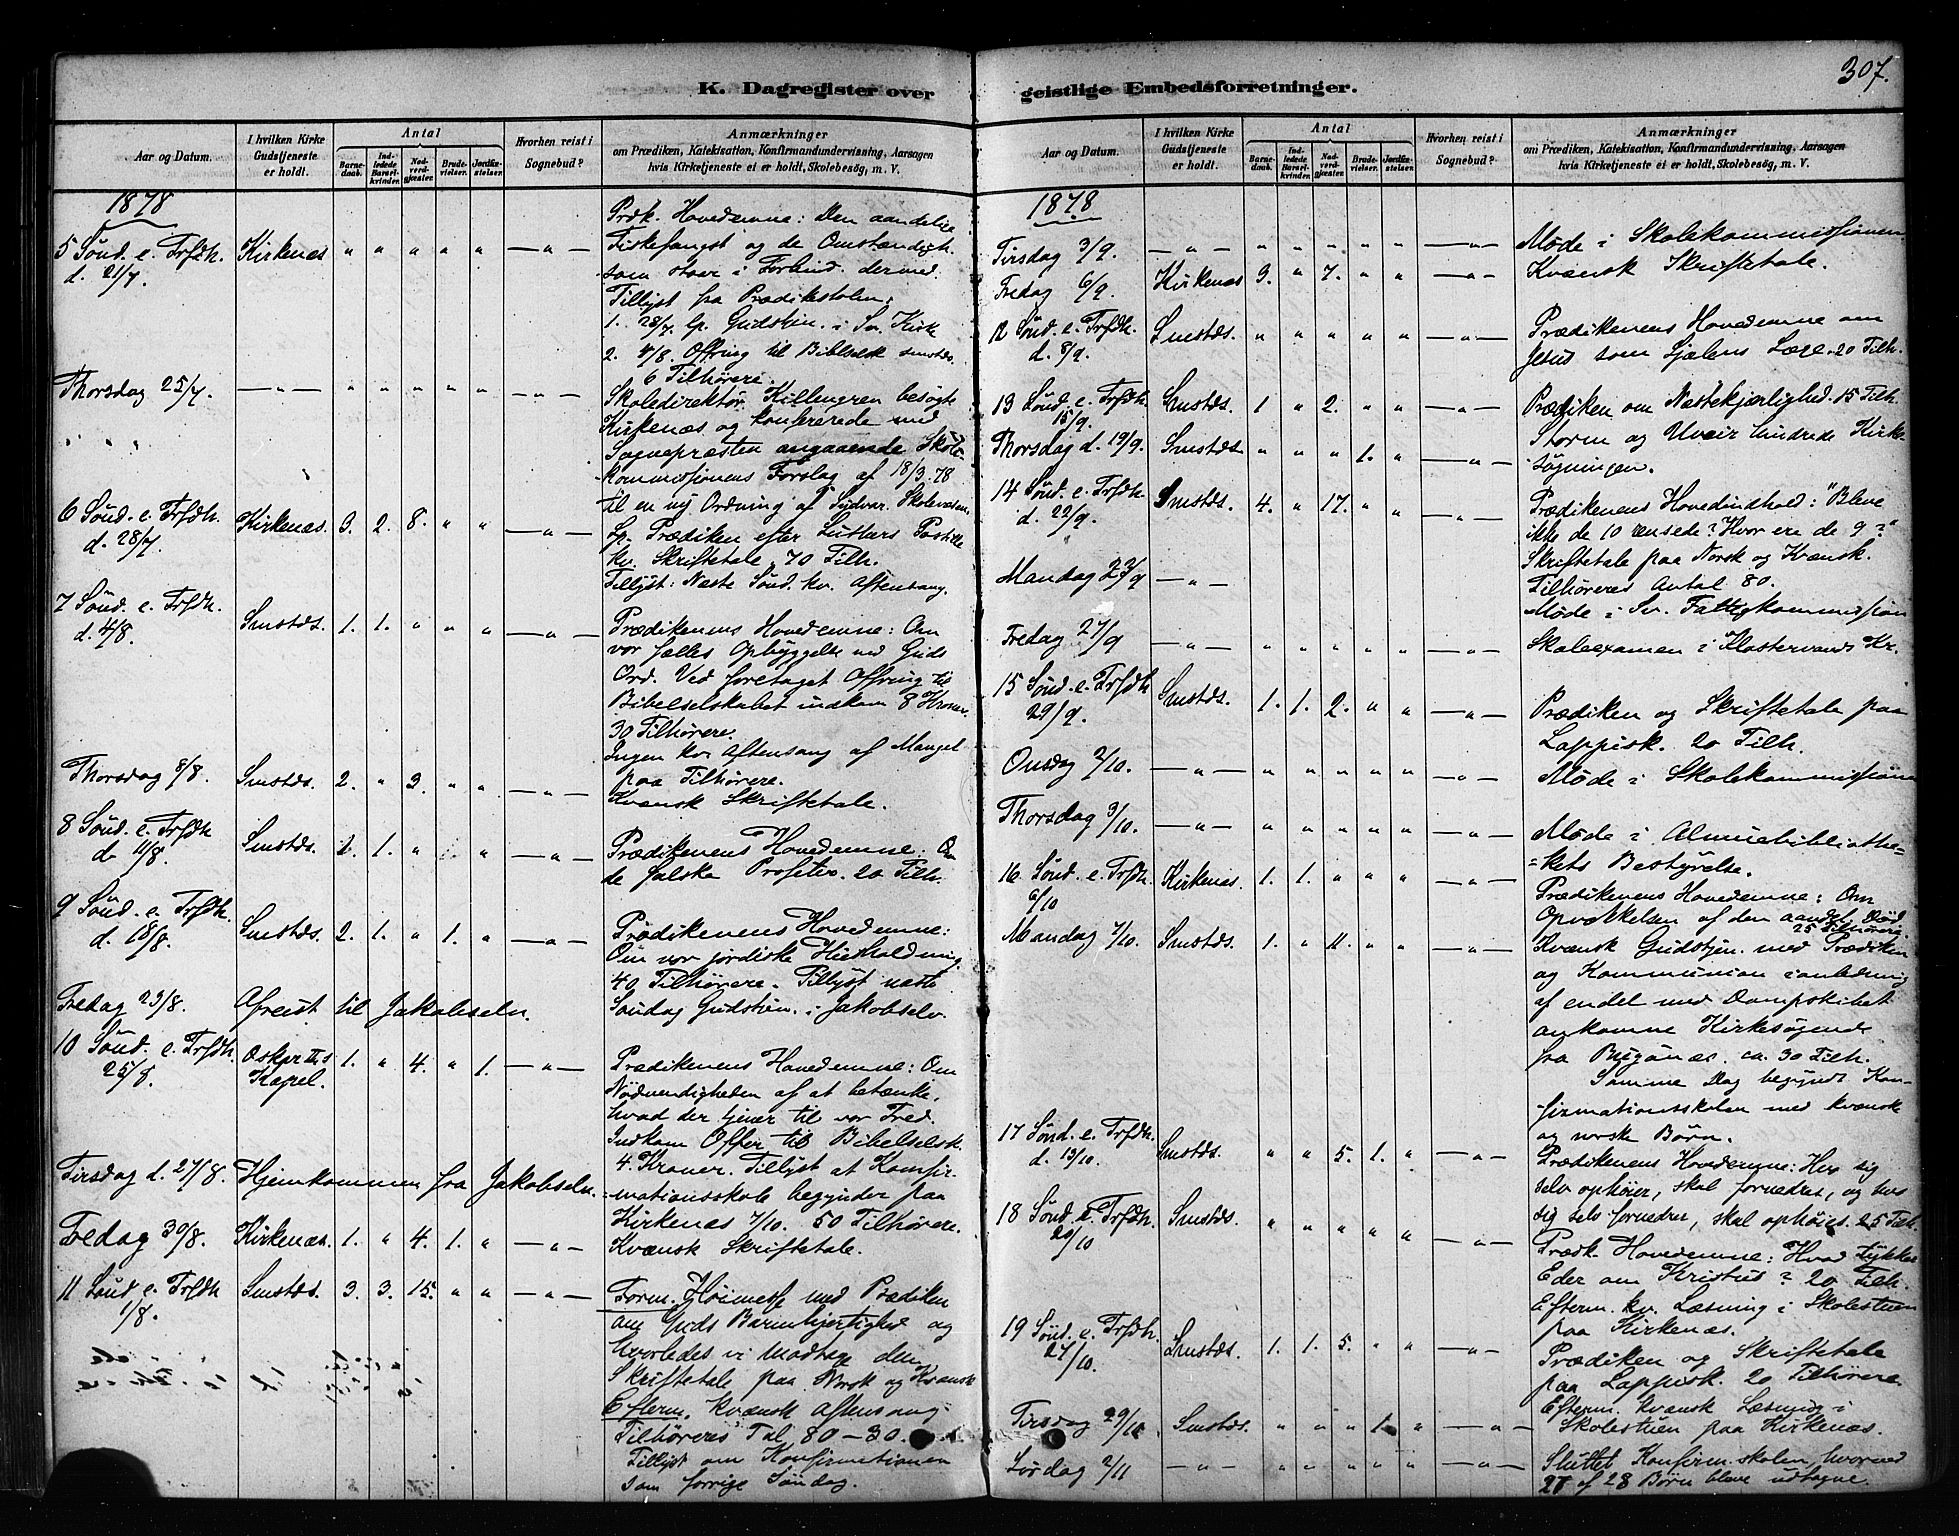 307.
K. Dagregister over geistlige Embedsforretninger.
Aar og Datum.
I hvilken Kirke Gudstjeneste er holdt.
Antal
Barnedaab.
Indledede Barselkvinder.
Nadverdgjæster.
Brudevielser.
Jordfæstelser.
Hvorhen reist i Sognebud?
Anmærkninger
om Prædiken, Katekisation, Konfirmandundervisning, Aarsagen
hvis Kirketjeneste ei er holdt, Skolebesøg, m. V.
1878
5 Sönd. e. Trfdh. d. 21/7. Kirkenæs " " " " " — " —
Præk. Hovedemne: Den aandelige
Fiskefangst og de Omstændigh.
som staar i Forbind. dermed.
Tillyst fra Prædikestolen:
1. 28/7 Lp. Gudstjen. i Sv. Kirk
2. 4/8. Offring til Bibelselsk smstds.
6 Tilhørere.
Thorsdag 25/7. — " — " " " " " — " —
Skoledirektør Killengren besøgte
Kirkenæs og konfererede med
Sognepræsten angaaende Skole-
kommissionens Forslag af 18/3.78
til en ny Ordning af Sydvar. Skolevæsen.
6 Sönd. e. Trfdh. d. 28/7 Kirkenæs. 3. 2. 8. " " — " —
Lp. Prædiken efter Luthers Postille
kv. Skriftetale. 70 Tilh.
Tillyst: Næste Sönd. kv. Aftensang.
7 Sönd. e. Trfdh. d. 4/8. Smstds. 1. 1. " " " — " —
Prædikenens Hovedemne: Om
vor fælles Opbyggelse ved Guds
Ord. Ved foretaget Offring til
Bibelselskabet indkom 8 Kroner.
30 Tilhørere.
Ingen kv Aftensang af Mangel
paa Tilhørere.
Thorsdag 8/8. Smstds. 2. " 3. " " — " —
Kvænsk Skriftetale.
8 Sönd. e. Trfdh d. 11/8. Smstds. 1. 1. " " " — " —
Prædikenens Hovedemne: Om
de falske Profeter. 20 Tilh.
9 Sönd. e. Trfdh. d. 18/8. Smstds. 2. 1. " 1. " — " —
Prædikenens Hovedemne:
Om vor jordiske Husholdning
40 Tilhørere. Tillyst næste
Søndag Gudstjen. i Jakobselv.
Fredag 23/8. Afreist til Jakobselv.
10 Sönd. e. Trfdh. 25/8. Oskar IIs Kapel. 1. " 4. " 1. — " —
Prædikenens Hovedemne: Om
Nödvendigheden af at betænke,
hvad der tjener til vor Fred.
Indkom Offer til Bibelselsk.
4 Kroner. Tillyst at Konfir-
mationsskole begynder paa
Kirkenæs 7/10. 50 Tilhørere.
Tirsdag d. 27/8. Hjemkommen fra Jakobselv.
Fredag 30/8. Kirkenæs. 1. " 4. 1. " — " —
Kvænsk Skriftetale.
11 Sönd e. Trfdh 1/8. Smstds. 3. 3. 15. " " — " —
Form. Høimesse med Prædiken
om Guds Barmhjertighed og
hvorledes vi modtage den
Skriftetale paa Norsk og Kvænsk
Efterm. Kvænsk Aftensang
Tilhøreres Tal 80 – 30.
Tillyst om Konfirmationen
som forrige Söndag.
Aar og Datum.
I hvilken Kirke Gudstjeneste er holdt.
Antal
Barnedaab.
Indledede Barselkvinder.
Nadverdgjæster.
Brudevielser.
Jordfæstelser.
Hvorhen reist i Sognebud?
Anmærkninger
om Prædiken, Katekisation, Konfirmandundervisning, Aarsagen
hvis Kirketjeneste ei er holdt, Skolebesøg, m. V.
1878
Tirsdag 3/9. — " — " " " " " — " —
Møde i Skolekommissionen
Fredag 6/9. Kirkenæs 3. " 7. " " — " —
Kvænsk Skriftetale.
12 Sönd. e. Trfdh. d. 8/9. Smstds. " " " " " — " —
Prædikenens Hovedemne om
Jesus som Sjælens Læge. 20 Tilh.
13 Sönd. e. Trfdh 15/9. Smstds. 1 " 2. " " — " —
Prædiken om Næstekjærlighed. 15 Tilh.
Storm og Uveir hindrede Kirke-
søgningen.
Thorsdag d. 19/9. Smstds. " " " 1. " — " —
14 Sönd. e. Trfdh. d. 22/9. Smstds. 4. " 17. " " — " —
Prædikenens Hovedindhold: "Bleve
ikke de 10 rensede? Hvor ere de 9?"
Skriftetale paa Norsk og Kvænsk.
Tilhøreres Antal 80.
Mandag 23/9 — " —
Møde i Sv. Fattigkommission
Fredag 27/9 — " — " " " " " — " —
Skoleexamen i Klostervands Kr.
15 Sönd. e. Trfdh 29/9. Smstds. 1. 1. 2. " " — " —
Prædiken og Skriftetale paa
Lappisk. 20 Tilh.
Onsdag 2/10. — " — " " " " " — " —
Møde i Skolekommissionen
Thorsdag 3/10. — " — " " " " " — " —
Møde i Almuebibliothe-
kets Bestyrelse.
16 Sönd. e. Trfdh. 6/10 Kirkenæs. 1. 1. " " " — " —
Prædikenens Hovedemne: Om
Opvækkelsen af den aandel. Död
25 Tilhørere.
Mandag 7/10. Smstds. 1. " 11. " " — " —
Kvænsk Gudstjen. med Prædiken
og Kommunion i anledning
af endel med Dampskibet
ankomne Kirkesøgende
fra Bugönæs. ca. 30 Tilh.
Samme Dag begyndt Kon-
firmationsskolen med kvænsk
og norske Börn.
17 Sönd. e. Trfdh. d. 13/10. Smstds. " " 5. 1. " — " —
Prædikenens Hovedemne: Hvo sig
selv ophøier, skal fornedres, og hvo
sig selv fornedrer, skal ophøies. 25 Tilh.
18 Sönd. e. Trfdh. 20/10 Smstds. " " " " " — " —
Prædk. Hovedemne: Hvad tykkes
Eder om Kristus? 20 Tilh.
Efterm. kv. Læsning i Skolestuen
paa Kirkenæs.
19 Sönd. e. Trfdh. 27/10. Smstds. 1. 1. 5. " " — " —
Prædiken og Skriftetale
paa Lappisk. 20 Tilhørere
Efterm. kvænsk Læsning i
Skolestuen paa Kirkenæs.
Tirsdag 29/10 Smstds. " " " 1 " — " —
Lørdag 2/11 — " — " " " " " — " —
Sluttet Konfirm. skolen, hvorved
27 af 28 Børn bleve udtagne.